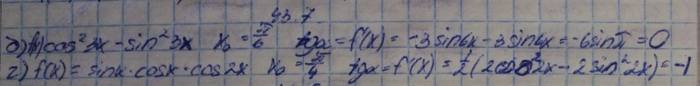 43.7
б) f(x) cos²3x - sin²3x x₀ = π/6 tgα = f'(x) = -3sin6x - 3sin6x = -6sinπ = 0
г) f(x) = sinx·cosx·cos2x x₀ = π/4 tgα = f'(x) = 1/2(2cos²2x - 2sin²2x) = -1